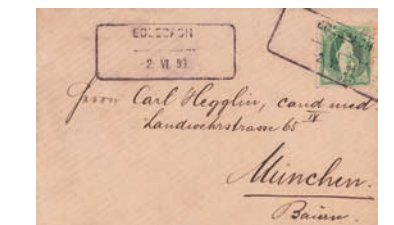 EDLIBACH
-2. VI. 93
EDLIBACH
Herrn Carl Hegglin, cand med.
Landwehrstrasse 65 IV
München.
Baiern.